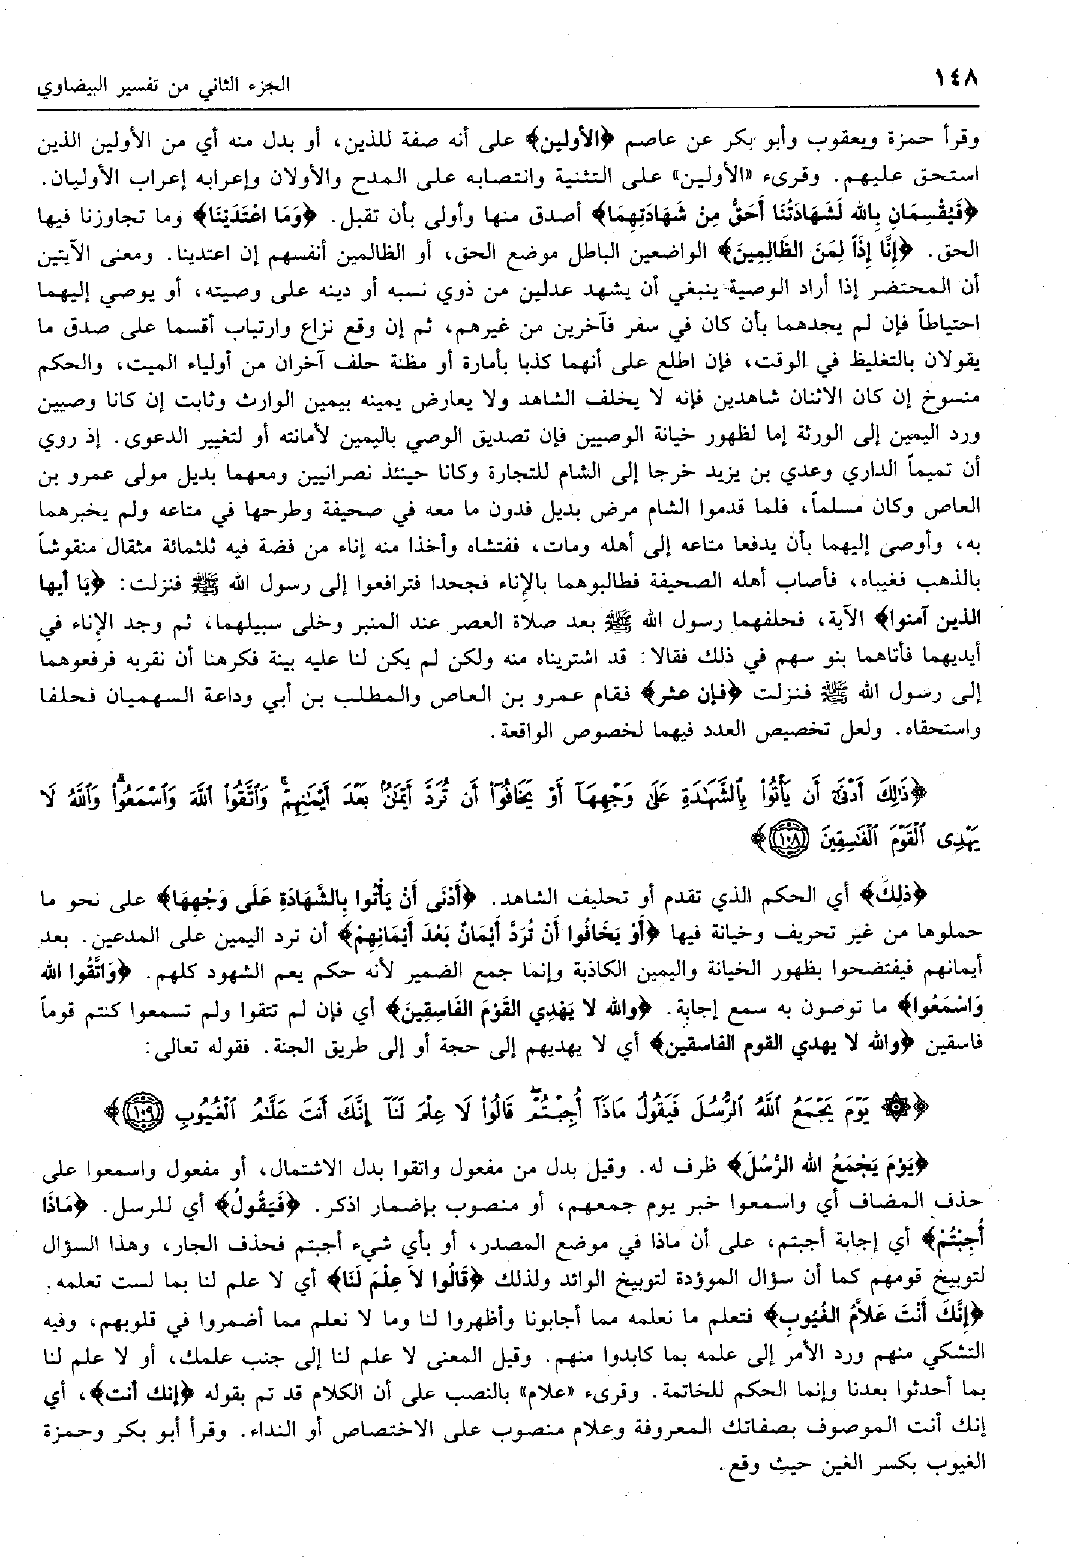 ١٤٨
الجزء الثاني من تفسير البيضاوي
وقرأ حمزة ويعقوب وأبو بكر عن عاصم ﴿الأولين﴾ على أنه صفة للذين، أو بدل منه أي من الأولين الذين
استحق عليهم. وقرىء «الأولين» على التثنية وانتصابه على المدح والأولان وإعرابه إعراب الأوليان.
﴿فَيُقْسِمَانِ بِالله لَشَهَادَتُنَا أَحَقُّ مِنْ شَهَادَتِهِمَا﴾ أصدق منها وأولى بأن تقبل. ﴿وَمَا اعْتَدَيْنَا﴾ وما تجاوزنا فيها
الحق. ﴿إِنَّا إِذَاً لَمَنَ الظَّالِمِينَ﴾ الواضعين الباطل موضع الحق، أو الظالمين أنفسهم إن اعتدينا. ومعنى الآيتين
أن المحتضر إذا أراد الوصية ينبغي أن يشهد عدلين من ذوي نسبه أو دينه على وصيته، أو يوصي إليهما
احتياطاً فإن لم يجدهما بأن كان في سفر فآخرين من غيرهم، ثم إن وقع نزاع وارتياب أقسما على صدق ما
يقولان بالتغليظ في الوقت، فإن اطلع على أنهما كذبا بأمارة أو مظنة حلف آخران من أولياء الميت، والحكم
منسوخ إن كان الاثنان شاهدين فإنه لا يحلف الشاهد ولا يعارض يمينه بيمين الوارث وثابت إن كانا وصيين
ورد اليمين إلى الورثة إما لظهور خيانة الوصيين فإن تصديق الوصي باليمين لأمانته أو لتغيير الدعوى. إذ روي
أن تميماً الداري وعدي بن يزيد خرجا إلى الشام للتجارة وكانا حينئذ نصرانيين ومعهما بديل مولى عمرو بن
العاص وكان مسلماً، فلما قدموا الشام مرض بديل فدون ما معه في صحيفة وطرحها في متاعه ولم يخبرهما
به، وأوصى إليهما بأن يدفعا متاعه إلى أهله ومات، ففتشاه وأخذا منه إناء من فضة فيه ثلثمائة مثقال منقوشاً
بالذهب فغيباه، فأصاب أهله الصحيفة فطالبوهما بالإناء فجحدا فترافعوا إلى رسول الله ﷺ فنزلت: ﴿يَا أيها
الذين آمنوا﴾ الآية، فحلفهما رسول الله ﷺ بعد صلاة العصر عند المنبر وخلى سبيلهما، ثم وجد الإناء في
أيديهما فأتاهما بنو سهم في ذلك فقالا: قد اشتريناه منه ولكن لم يكن لنا عليه بينة فكرهنا أن نقربه فرفعوهما
إلى رسول الله ﷺ فنزلت ﴿فإن عثر﴾ فقام عمرو بن العاص والمطلب بن أبي وداعة السهميان فحلفا
واستحقاه. ولعل تخصيص العدد فيهما لخصوص الواقعة.
﴿ذَٰلِكَ أَدْنَىٰٓ أَن يَأْتُوا۟ بِٱلشَّهَٰدَةِ عَلَىٰ وَجْهِهَآ أَوْ يَخَافُوٓا۟ أَن تُرَدَّ أَيْمَٰنٌۢ بَعْدَ أَيْمَٰنِهِمْ ۗ وَٱتَّقُوا۟ ٱللَّهَ وَٱسْمَعُوا۟ ۗ وَٱللَّهُ لَا
يَهْدِى ٱلْقَوْمَ ٱلْفَٰسِقِينَ ١٠٨﴾
﴿ذلِكَ﴾ أي الحكم الذي تقدم أو تحليف الشاهد. ﴿أَدْنَى أَنْ يَأْتُوا بِالشَّهَادَةِ عَلَى وَجْهِهَا﴾ على نحو ما
حملوها من غير تحريف وخيانة فيها ﴿أَوْ يَخَافُوا أَنْ تُرَدَّ أَيْمَانٌ بَعْدَ أَيْمَانِهِمْ﴾ أن ترد اليمين على المدعين. بعد
أيمانهم فيفتضحوا بظهور الخيانة واليمين الكاذبة وإنما جمع الضمير لأنه حكم يعم الشهود كلهم. ﴿وَاتَّقُوا الله
وَاسْمَعُوا﴾ ما توصون به سمع إجابة. ﴿والله لا يَهْدِي القَوْمَ الفَاسِقِينَ﴾ أي فإن لم تتقوا ولم تسمعوا كنتم قوماً
فاسقين ﴿والله لا يهدي القوم الفاسقين﴾ أي لا يهديهم إلى حجة أو إلى طريق الجنة. فقوله تعالى:
﴿۞ يَوْمَ يَجْمَعُ ٱللَّهُ ٱلرُّسُلَ فَيَقُولُ مَاذَآ أُجِبْتُمْ ۖ قَالُوا۟ لَا عِلْمَ لَنَآ إِنَّكَ أَنتَ عَلَّٰمُ ٱلْغُيُوبِ ١٠٩﴾
﴿يَوْمَ يَجْمَعُ الله الرُّسُلَ﴾ ظرف له. وقيل بدل من مفعول واتقوا بدل الاشتمال، أو مفعول واسمعوا على
حذف المضاف أي واسمعوا خبر يوم جمعهم، أو منصوب بإضمار اذكر. ﴿فَيَقُولُ﴾ أي للرسل. ﴿مَاذَا
أُجِبْتُمْ﴾ أي إجابة أجبتم، على أن ماذا في موضع المصدر، أو بأي شيء أجبتم فحذف الجار، وهذا السؤال
لتوبيخ قومهم كما أن سؤال الموؤدة لتوبيخ الوائد ولذلك ﴿قَالُوا لاَ عِلْمَ لَنَا﴾ أي لا علم لنا بما لست تعلمه.
﴿إِنَّكَ أَنْتَ عَلاَّمُ الغُيُوبِ﴾ فتعلم ما نعلمه مما أجابونا وأظهروا لنا وما لا نعلم مما أضمروا في قلوبهم، وفيه
التشكي منهم ورد الأمر إلى علمه بما كابدوا منهم. وقيل المعنى لا علم لنا إلى جنب علمك، أو لا علم لنا
بما أحدثوا بعدنا وإنما الحكم للخاتمة. وقرىء «علام» بالنصب على أن الكلام قد تم بقوله ﴿إنك أنت﴾، أي
إنك أنت الموصوف بصفاتك المعروفة وعلام منصوب على الاختصاص أو النداء. وقرأ أبو بكر وحمزة
الغيوب بكسر الغين حيث وقع.